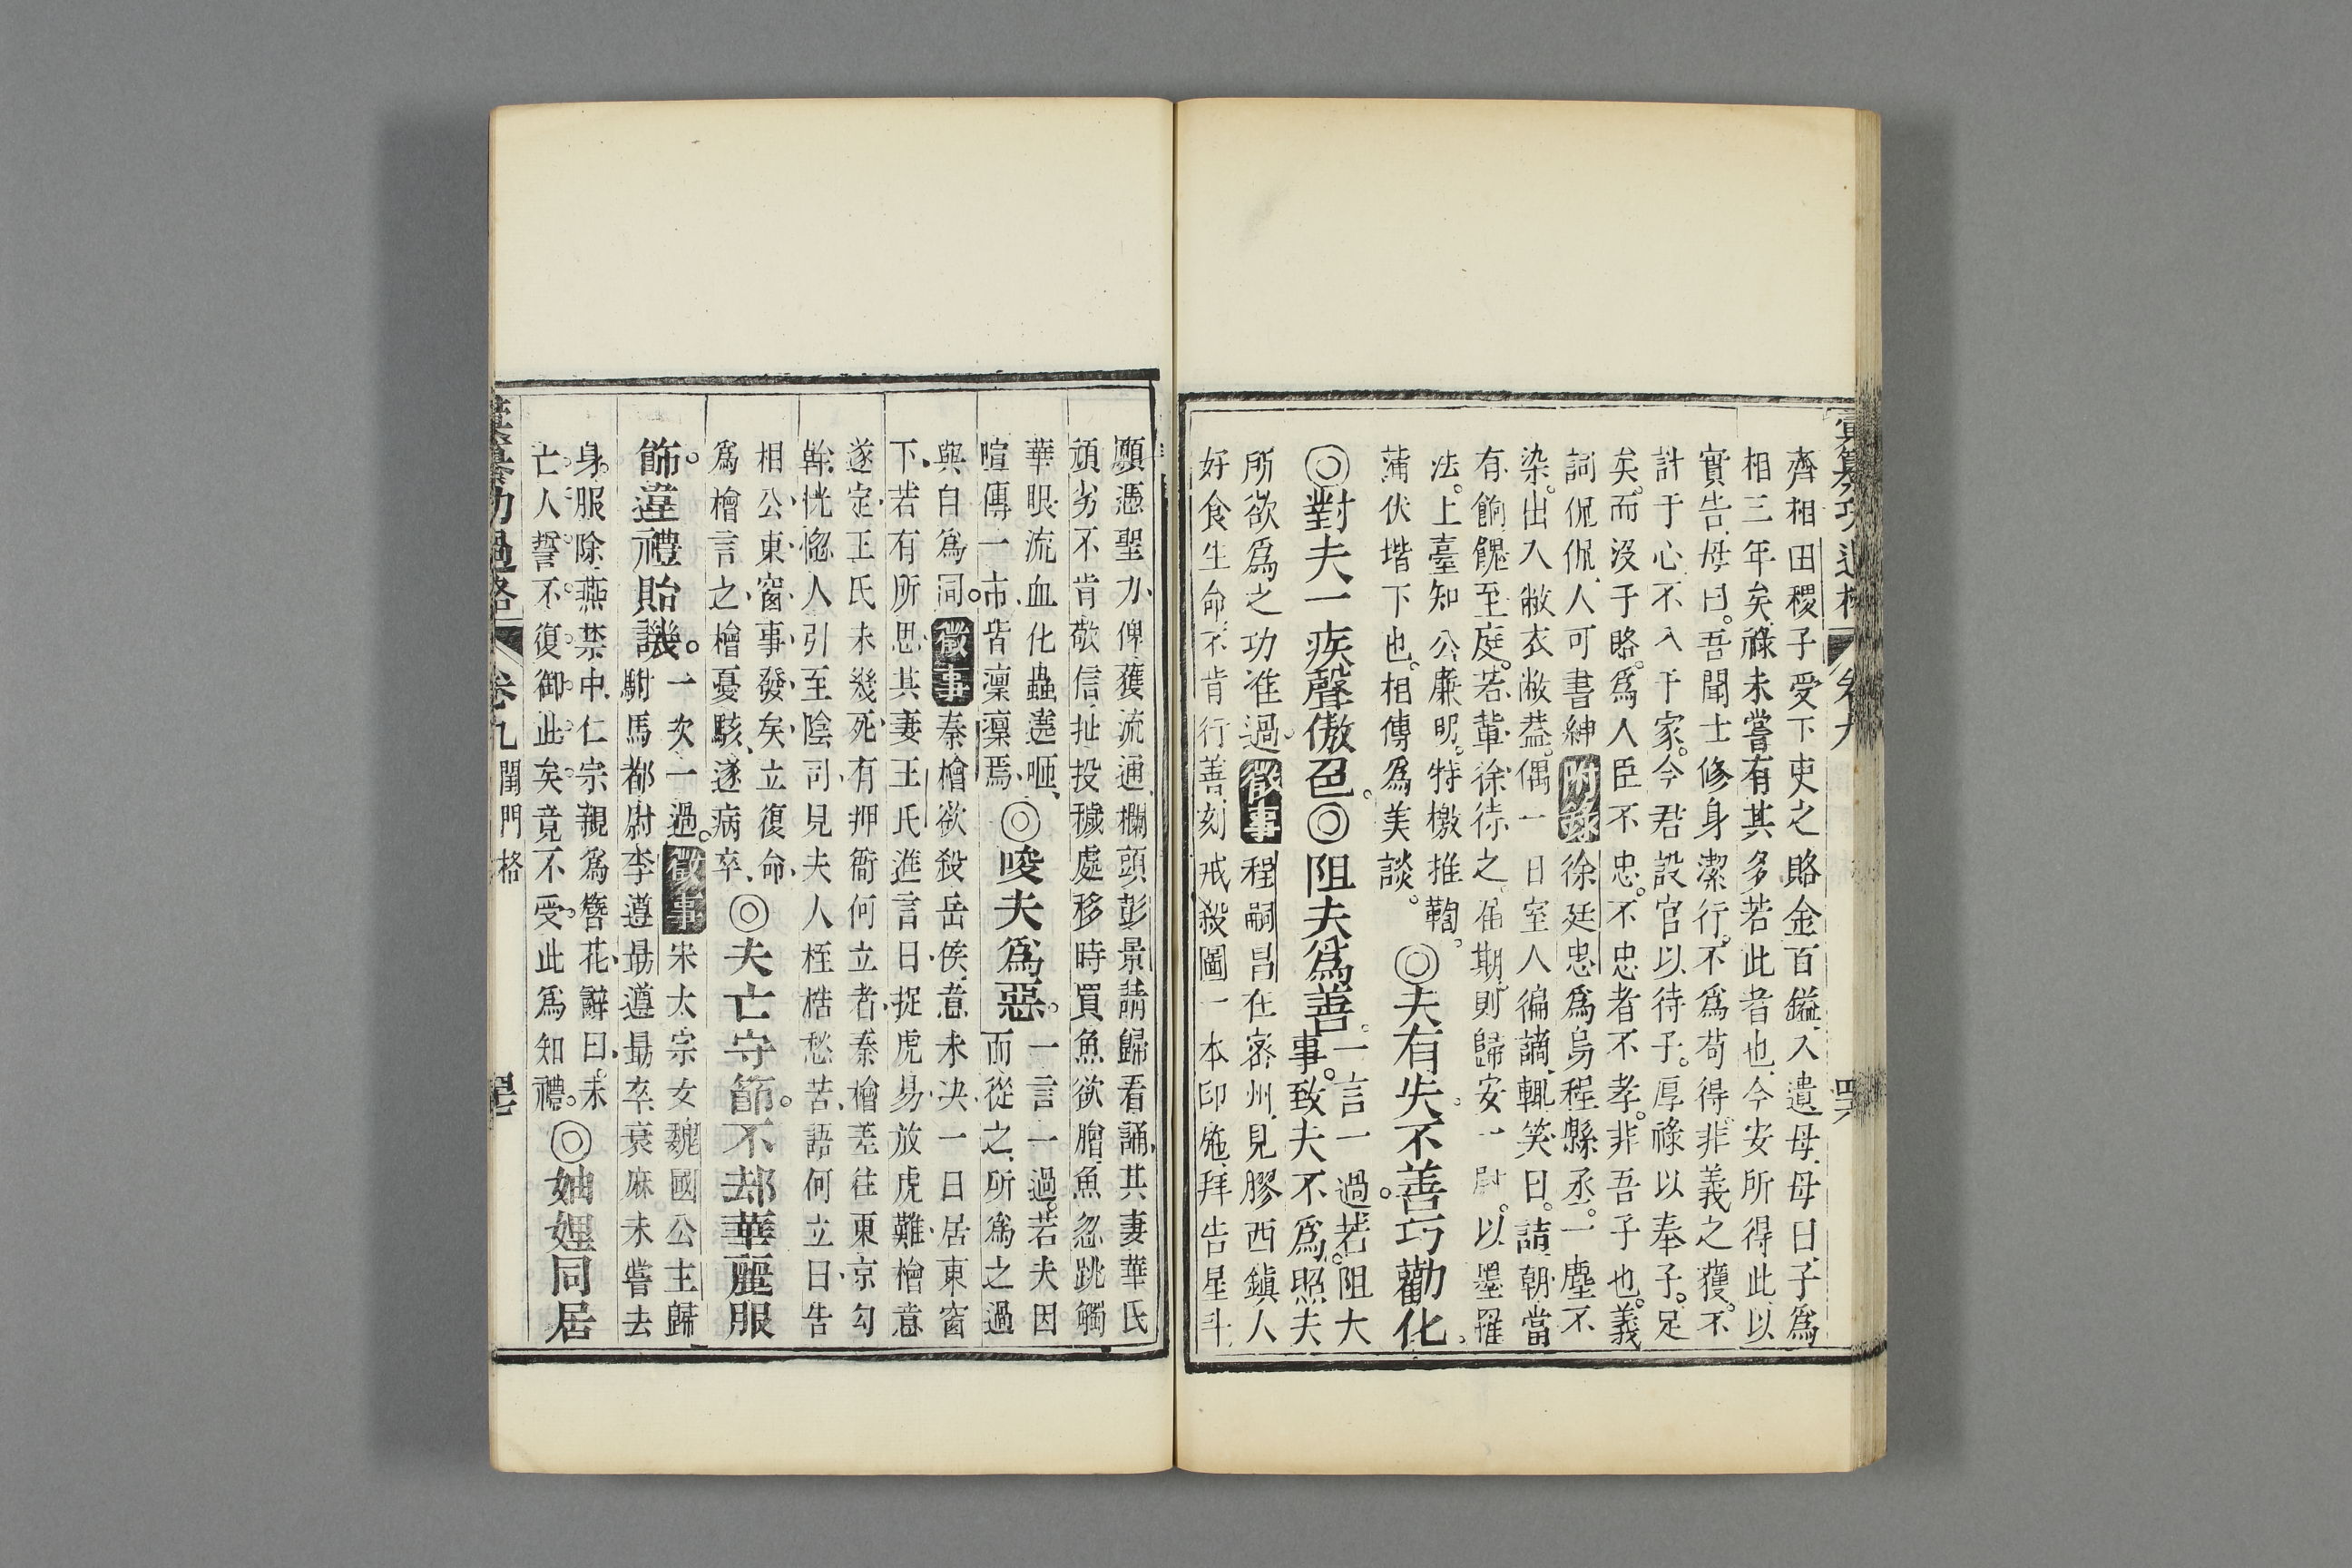 彙纂功過格 卷九 四六
齊相田稷子受下吏之賂金百鎰入遺母母曰子爲
相三年矣祿未嘗有其多若此者也今安所得此以
實告母曰。吾聞士修身潔行。不爲苟得。非義之獲。不
計于心不入于家。今君設官以待子。厚祿以奉子。足
矣。而沒于賂。爲人臣不忠。不忠者不孝。非吾子也。義
詞侃侃人可書紳附錄徐廷忠爲烏程縣丞。一塵不
染。出入敝衣敝葢。偶一日室人徧謫輒笑曰。請朝當
有餉餽至庭。若輩徐待之屆期則歸安一尉。以墨罹
法。上臺知公廉明。特檄推鞫。
蒲伏堦下也。相傳爲美談。◎夫有失。不善巧勸化。
◎對夫一疾聲傲色。◎阻夫爲善。一言一過。若阻大
事。致夫不爲。照夫
所欲爲之功准過。徵事程嗣昌在密州見膠西鎮人
好食生命不肯行善刻戒殺圖一本印施拜告星斗
願憑聖力俾獲流通欄頭彭景請歸看誦其妻華氏
頑劣不肯敬信扯投穢處移時買魚欲膾魚忽跳觸
華眼流血化蟲遶咂
喧傳一市皆凜凜焉◎唆夫爲惡。一言一過。若夫因
而從之所爲之過
與自爲同。徵事秦檜欲殺岳侯意未決一日居東窗
下若有所思其妻王氏進言曰捉虎易放虎難檜意
遂定王氏未幾死有押衙何立者秦檜差往東京勾
幹恍惚人引至陰司見夫人桎梏愁苦語何立曰告
相公東窗事發矣立復命
爲檜言之檜憂駭遂病卒◎夫亡守節。不却華麗服
飾。違禮貽譏。一次一過。徵事宋太宗女魏國公主歸
駙馬都尉李遵勗遵勗卒衰麻未嘗去
身。服除燕禁中仁宗親爲簪花辭曰。未
亡人誓不復御此矣竟不受此爲知禮。◎妯娌同居
彙纂功過格 卷九 閨門格 四七